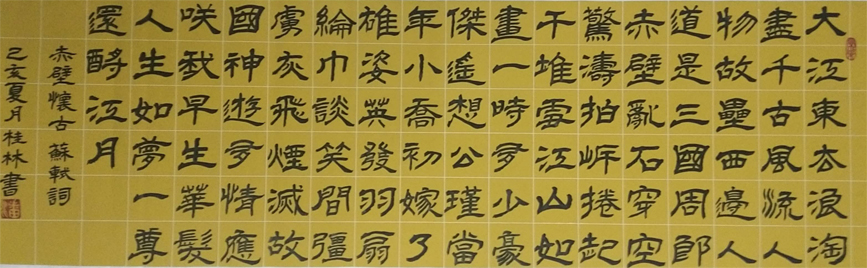 大江東去浪淘
盡千古風流人
物故壘西邊人
道是三國周郎
赤壁亂石穿空
驚濤拍岸捲起
千堆雪江山如
畫一時多少豪
傑遙想公瑾當
年小喬初嫁了
雄姿英發羽扇
綸巾談笑間彊
虜灰飛煙滅故
國神遊多情應
咲我早生華髮
人生如夢一尊
還酹江月
赤壁懷古 蘇軾詞
己亥夏月桂林書